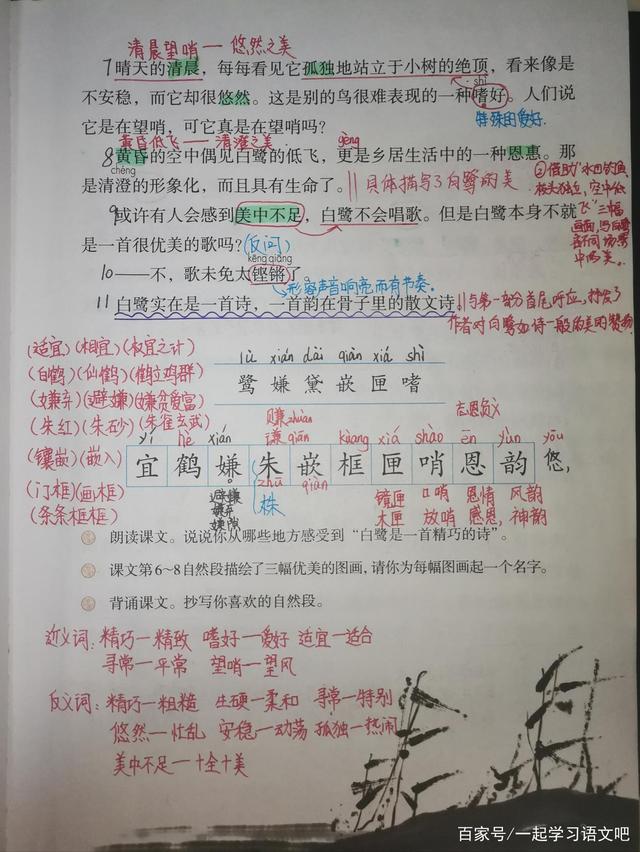 清晨望哨一悠然之美
7晴天的清晨，每每看见它孤独地站立于小树的绝顶，看来像是
shì
不安稳，而它却很悠然。这是别的鸟很难表现的一种嗜好。人们说
特殊的爱好.
它是在望哨吗，可它真是在望哨吗？
黄昏低飞一清澄之美
gèng
8黄昏的空中偶见白鹭的低飞，更是乡居生活中的一种恩惠。那
chéng
是清澄的形象化，而且具有生命了。
具体描写了白鹭的美
9或许有人会感到美中不足，白鹭不会唱歌。但是白鹭本身不就
是一首很优美的歌吗？
(反问)
kēng qiāng
10——不，歌未免太铿锵了。
形容声音响亮而有节奏。
11 白鹭实在是一首诗，一首韵在骨子里的散文诗。
与第一部分首尾呼应，抒发了
作者对白鹭如诗一般的美的赞物
(适宜)(相宜)(权宜之计)
(白鹤)(仙鹤)(鹤立鸡群)
(嫌弃)(避嫌)(嫌贫爱富)
(朱红)(朱砂)(朱雀玄武)
(镶嵌)(嵌入)
(门框)(画框)
(条条框框)
lù xián dài qiàn xiá shì
鹭 嫌 黛 嵌 匣 嗜
赚zhuàn
谦qiān
忘恩负义
yí hè xián kuàng xiá shào ēn yùn yōu
宜 鹤 嫌 朱 嵌 框 匣 哨 恩 韵 悠,
zhū qiàn
株
避嫌
嫌弃
嫌隙
镜匣 口哨 恩情 风韵
木匣 放哨 感恩, 神韵
朗读课文。说说你从哪些地方感受到“白鹭是一首精巧的诗”。
课文第6~8自然段描绘了三幅优美的图画，请你为每幅图画起一个名字。
背诵课文。抄写你喜欢的自然段。
近义词：精巧一精致 嗜好一爱好 适宜一适合
寻常一平常 望哨一望风
反义词：精巧一粗糙 生硬一柔和 寻常一特别
悠然一忙乱 安稳一动荡 孤独一热闹
美中不足一十全十美
百家号/一起学习语文吧